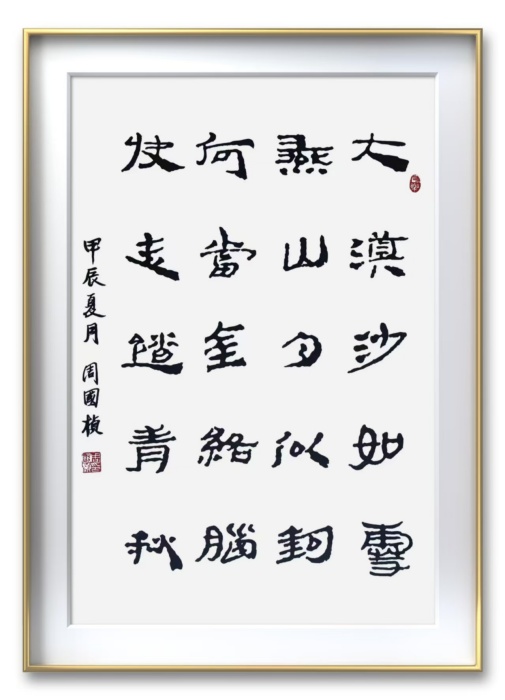 大漠沙如雪
燕山月似鉤
何當金絡腦
快走踏青秋
甲辰夏月 周國楨